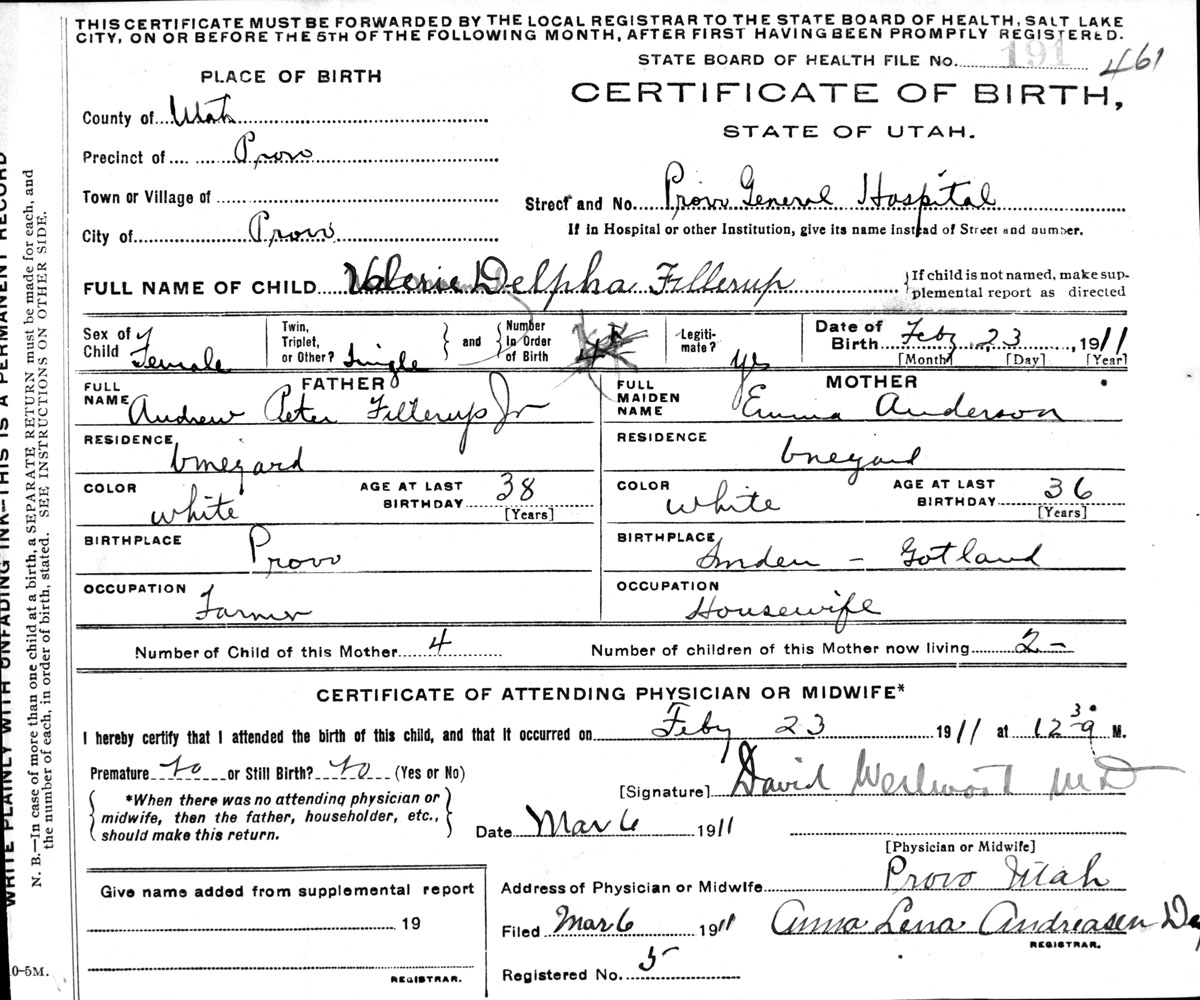 THIS CERTIFICATE MUST BE FORWARDED BY THE LOCAL REGISTRAR TO THE STATE BOARD OF HEALTH, SALT LAKE
CITY, ON OR BEFORE THE 5TH OF THE FOLLOWING MONTH, AFTER FIRST HAVING BEEN PROMPTLY REGISTERED.
STATE BOARD OF HEALTH FILE No. 191 461
PLACE OF BIRTH
CERTIFICATE OF BIRTH,
STATE OF UTAH.
County of Utah
Precinct of Provo
Town or Village of
Street and No. Provo General Hospital
City of Provo
If in Hospital or other Institution, give its name instead of Street and number.
FULL NAME OF CHILD Valerie Delpha Fillerup
{If child is not named, make sup-
plemental report as directed
Sex of Child Female
Twin, Triplet, or Other? Single
and
Number In Order of Birth
Legiti-mate? yes
Date of Birth Feby 23, 1911
[Month] [Day] [Year]
FATHER
FULL NAME Andrew Peter Fillerup Jr
MOTHER
FULL MAIDEN NAME Emma Anderson
RESIDENCE
RESIDENCE
COLOR white
AGE AT LAST BIRTHDAY 38 [Years]
COLOR white
AGE AT LAST BIRTHDAY 36 [Years]
BIRTHPLACE Provo
BIRTHPLACE - Gotland
OCCUPATION Farmer
OCCUPATION Housewife
Number of Child of this Mother 4
Number of children of this Mother now living 2 -
CERTIFICATE OF ATTENDING PHYSICIAN OR MIDWIFE*
I hereby certify that I attended the birth of this child, and that it occurred on Feby 23 1911 at 12 30 M.
Premature No or Still Birth? No (Yes or No)
[Signature] David MD
{*When there was no attending physician or
midwife, then the father, householder, etc.,
should make this return.}
Date Mar 6 1911
[Physician or Midwife]
Address of Physician or Midwife Provo Utah
Give name added from supplemental report
19
REGISTRAR.
Filed Mar 6 1911 Anna Lena Andreasen Dep
REGISTRAR.
Registered No. 5
WRITE PLAINLY WITH UNFADING INK—THIS IS A PERMANENT RECORD
N. B.—In case of more than one child at a birth, a SEPARATE RETURN must be made for each, and
the number of each, in order of birth, stated. SEE INSTRUCTIONS ON OTHER SIDE.
0-5M.